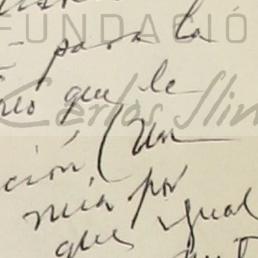 FUNDACIÓ
para la
que le
Carlos Slim
ción, (Un
mia por
que igual